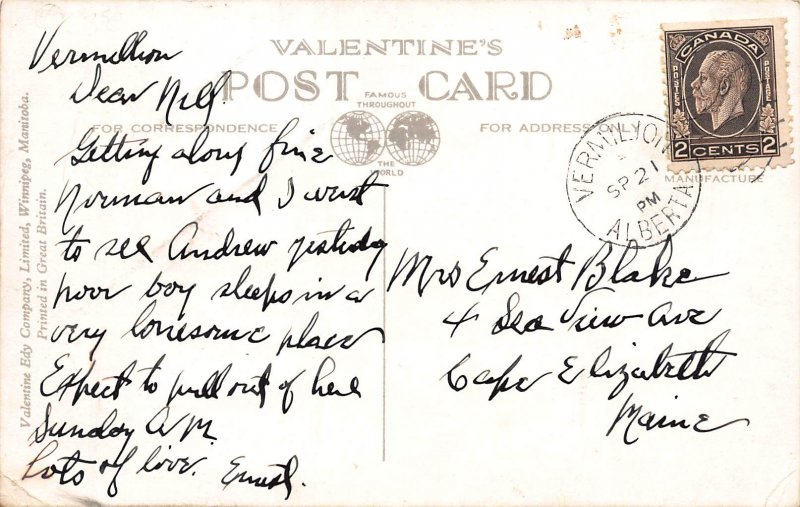 Vermillion
Dear Nell
Getting along fine
Norman and I went
to see Andrew yestiday
poor boy sleeps in a
very lonesome place
Expect to pull out of here
Sunday AM
Lots of love. Ernest.
VALENTINE'S
POST CARD
FAMOUS
THROUGHOUT
THE
WORLD
FOR CORRESPONDENCE
FOR ADDRESS ONLY
MANUFACTURE
Valentine Edy Company, Limited, Winnipeg, Manitoba.
Printed in Great Britain.
CANADA
POSTES
POSTAGE
2 CENTS 2
VERMILION
SP 21
PM
ALBERTA
Mrs Ernest Blake
4 Sea View Ave
Cape Elizabeth
Maine